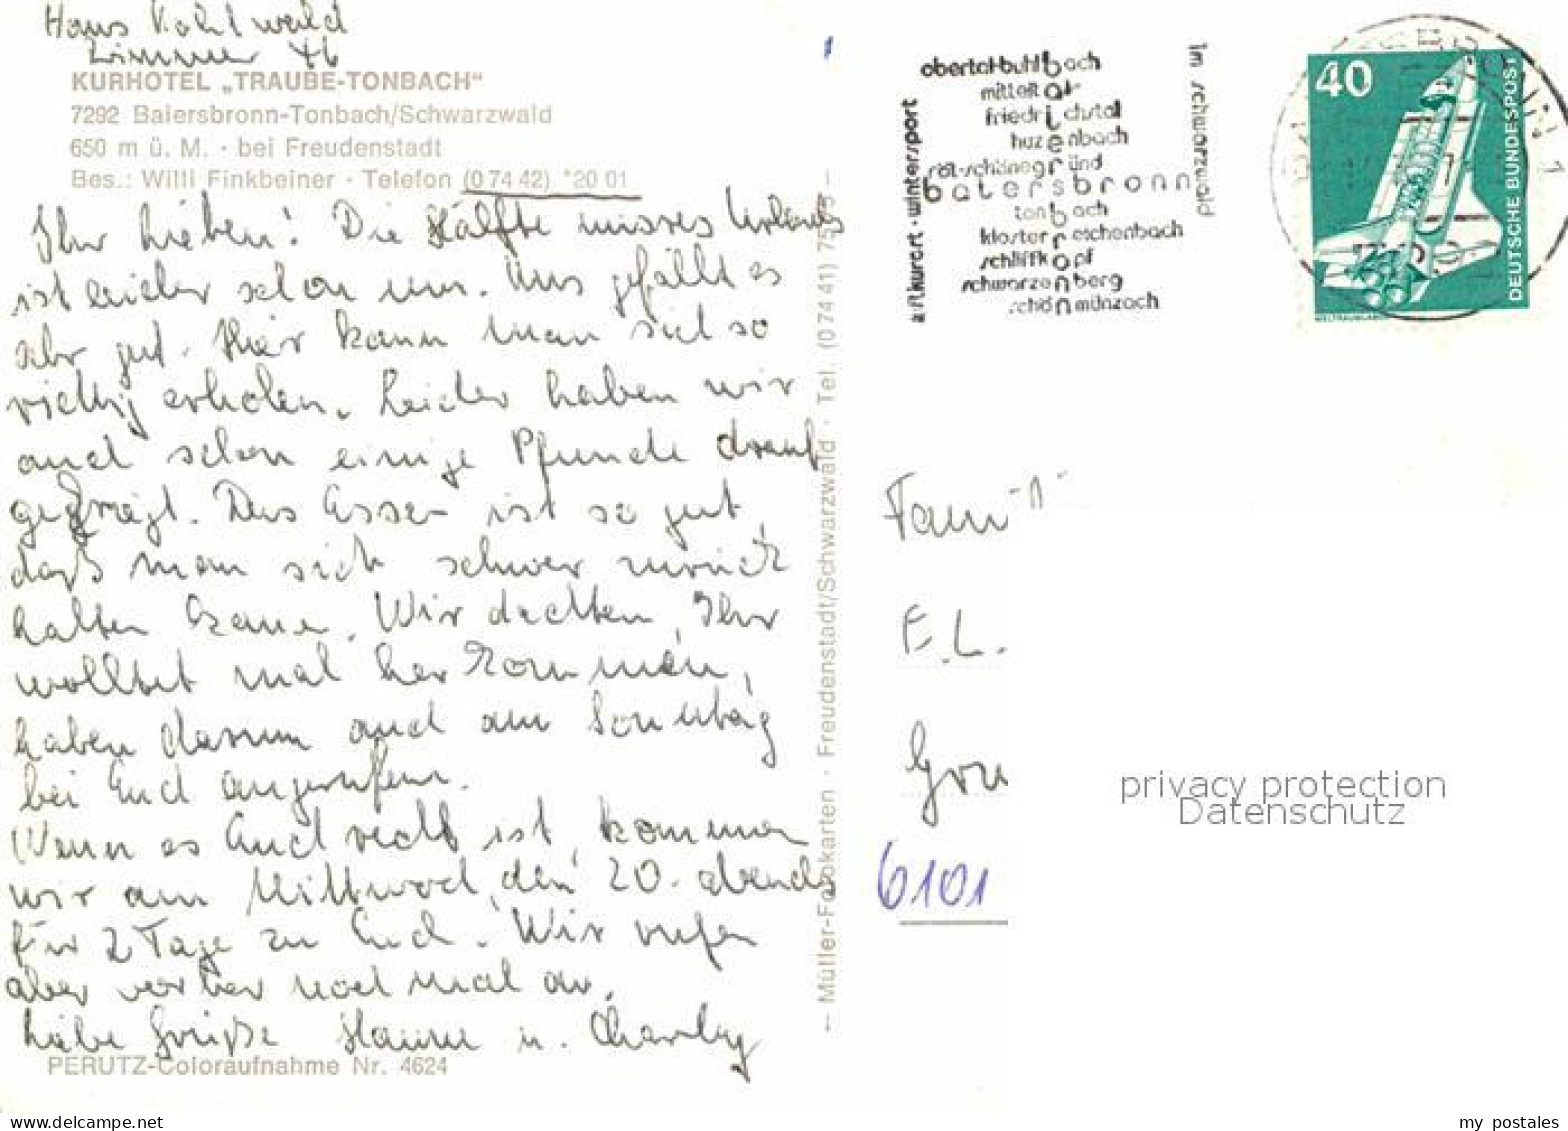 Haus Kohlwald
Zimmer 46
KURHOTEL „TRAUBE-TONBACH“
7292 Baiersbronn-Tonbach/Schwarzwald
650 m ü. M. · bei Freudenstadt
Bes.: Willi Finkbeiner · Telefon (0 74 42) *20 01
Ihr Lieben! Die Hälfte unseres Urlaubs
ist leider schon um. Uns gefällt es
sehr gut. Hier kann man sich so
richtig erholen. Leider haben wir
auch schon einige Pfunde drauf
gekriegt. Das Essen ist so gut,
daß man sich schwer zurück
halten kann. Wir dachten, Ihr
wolltet mal her kommen,
haben darum auch am Sonntag
bei Euch angerufen.
Wenn es Euch recht ist, kommen
wir am Mittwoch, den 20. abends
für 2 Tage zu Euch. Wir rufen
aber vorher noch mal an.
Liebe Grüße Hanne u. Charly
PERUTZ-Coloraufnahme Nr. 4624
← Müller-Fotokarten · Freudenstadt/Schwarzwald · Tel. (0 74 41) 75 75 –
luftkurort · wintersport
obertal-buhlbach
mitteltal
friedrichstal
huzenbach
röt-schönegründ
baiersbronn
tonbach
klosterreichenbach
schliffkopf
schwarzenberg
schönmünzach
im schwarzwald
40
DEUTSCHE BUNDESPOST
WELTRAUMLABOR
Fami
E. L.
Gru
6101
privacy protection
Datenschutz
www.delcampe.net
my_postales